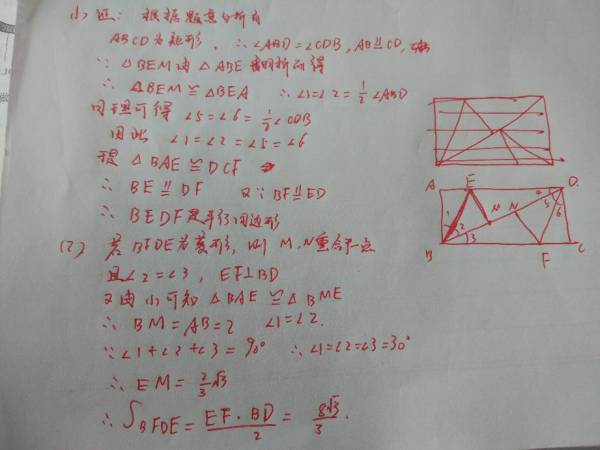 (1) 证: 根据题意分析有
ABCD为矩形, ∴∠ABD=∠CDB, AB∥CD,
∵ △BEM由△ABE翻折而得
∴ △BEM≌△BEA ∴∠1=∠2=½∠ABD
同理可得 ∠5=∠6=½∠CDB
因此 ∠1=∠2=∠5=∠6
△BAE≌DCF
∴ BE∥DF 又∵ BF∥ED
∴ BEDF是平行四边形
(2) 若BFDE为菱形, 则M、N重合于一点
且∠2=∠3, EF⊥BD
又由(1)可知△BAE≌△BME
∴ BM=AB=2 ∠1=∠2.
∵∠1+∠2+∠3=90° ∴∠1=∠2=∠3=30°
∴ EM=2/3√3
∴ S BFDE=EF·BD/2=8√3/3.
A E D
1 2 3 M N 4 5 6
B F C